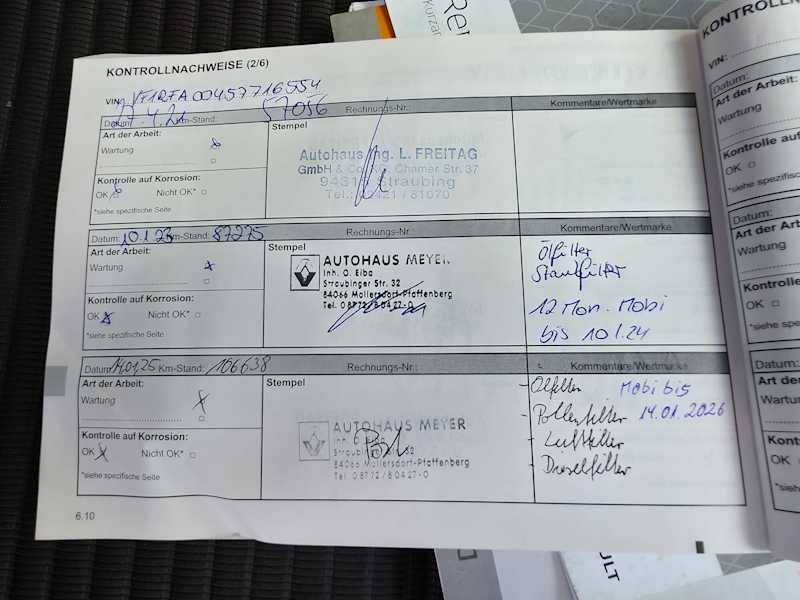 KONTROLLNACHWEISE (2/6)
VIN: VF1RFA00457716554
Datum: 27.4.21 Km-Stand: 57056 Rechnungs-Nr.: Kommentare/Wertmarke
Art der Arbeit:
Wartung
Kontrolle auf Korrosion:
OK Nicht OK*
*siehe spezifische Seite
Stempel
Autohaus Ing. L. FREITAG
GmbH & Co. KG, Chamer Str. 37
94315 Straubing
Tel.: 09421 / 81070
Datum: 10.1.23 Km-Stand: 87275 Rechnungs-Nr.: Kommentare/Wertmarke
Art der Arbeit:
Wartung
Kontrolle auf Korrosion:
OK Nicht OK*
*siehe spezifische Seite
Stempel
AUTOHAUS MEYER
Inh. O. Eiba
Straubinger Str. 32
84066 Mallersdorf-Pfaffenberg
Tel. 0 87 72 / 8 04 27-0
Ölfilter
Staubfilter
12 Mon. Mobi
bis 10.1.24
Datum: 14.01.25 Km-Stand: 106638 Rechnungs-Nr.: Kommentare/Wertmarke
Art der Arbeit:
Wartung
Kontrolle auf Korrosion:
OK Nicht OK*
*siehe spezifische Seite
Stempel
AUTOHAUS MEYER
Inh.
Straubinger Str. 32
84066 Mallersdorf-Pfaffenberg
Tel. 0 87 72 / 8 04 27-0
- Ölfilter Mobi bis
- Pollenfilter 14.01.2026
- Luftfilter
- Dieselfilter
6.10
KONTROLLN
VIN:
Datum:
Art der Arbeit:
Wartung
Kontrolle
OK
*siehe spez
Datum:
Art der
Wartung
Kontrolle
OK
*siehe
Datum
Art d
Wart
Kont
OK
*sieh
Ren
Kurzan
ULT